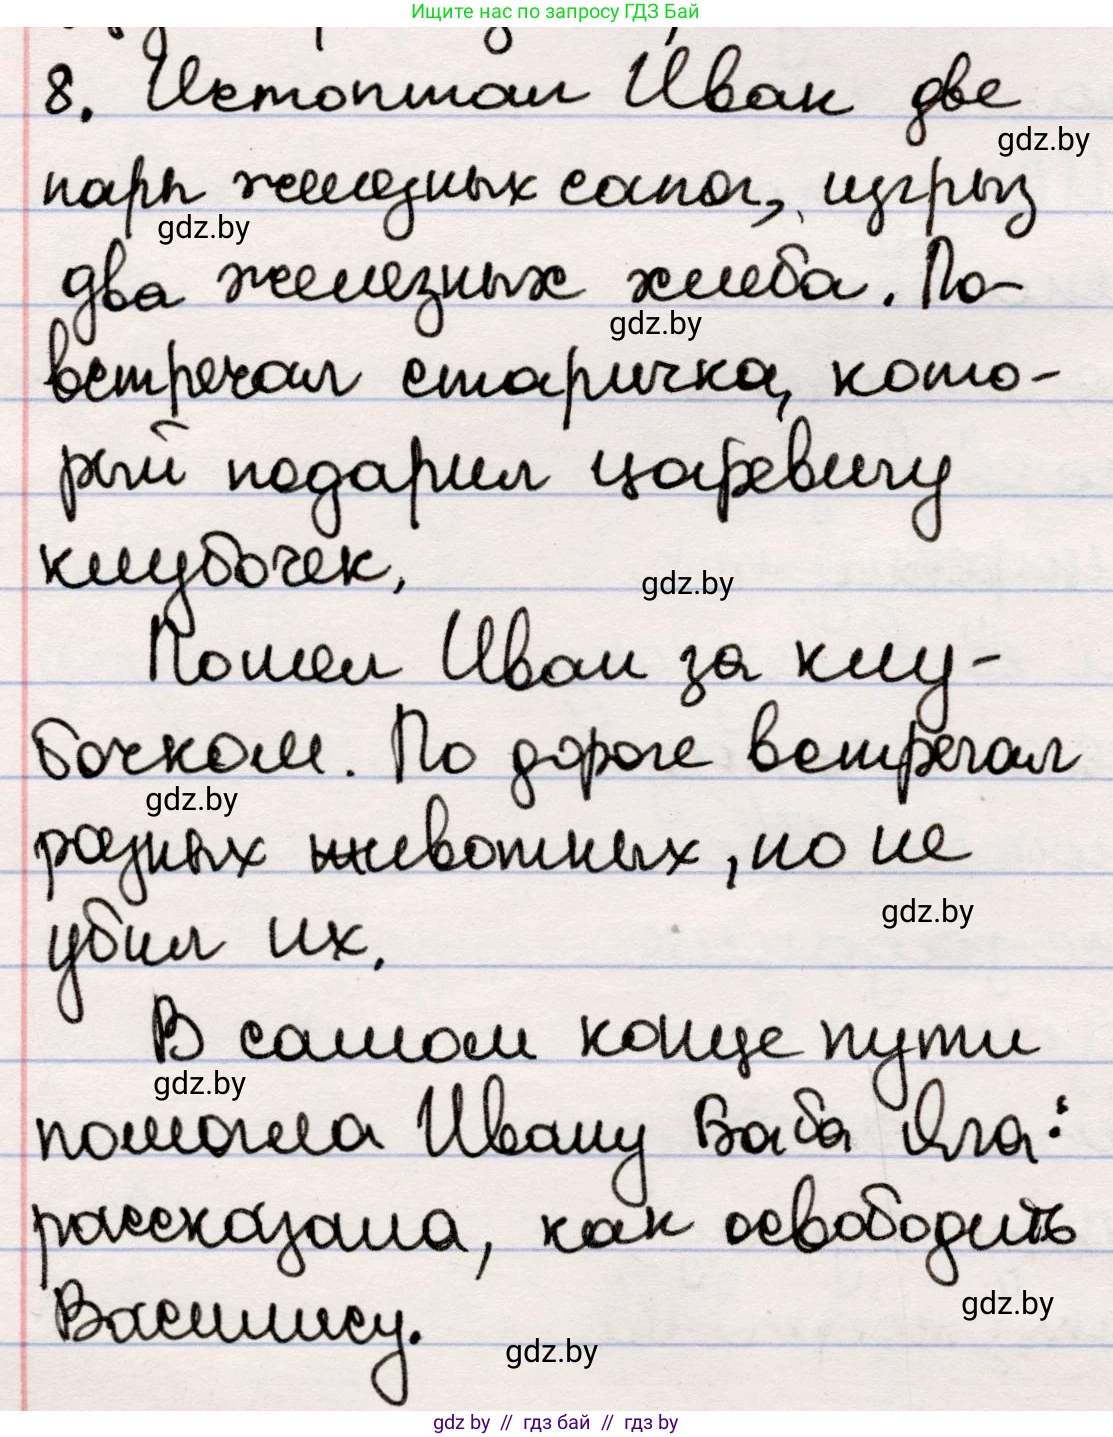 Ищите нас по запросу ГДЗ Бай
8. Истоптал Иван две
gdz.by
пары железных сапог, изгрыз
gdz.by
два железных хлеба. По-
gdz.by
встречал старичка, кото-
рый подарил царевичу
клубочек.
gdz.by
Пошел Иван за клу-
бочком. По дороге встречал
gdz.by
разных животных, но не
gdz.by
убил их.
В самом конце пути
gdz.by
помогла Ивану Баба Яга:
рассказала, как освободить
gdz.by
Василису.
gdz.by
gdz by // гдз бай // gdz by